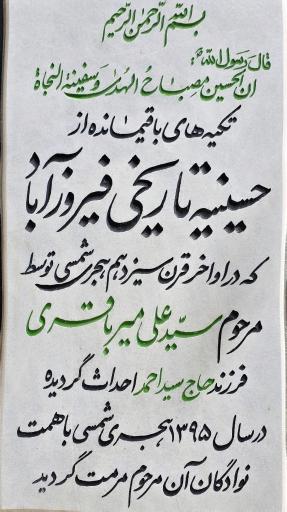 بسم الله الرحمن الرحیم
قال رسول الله ص:
ان الحسین مصباح الهدی و سفینة النجاة
تکیه‌های باقیمانده از
حسینیه تاریخی فیروزآباد
که در اواخر قرن سیزدهم هجری شمسی توسط
مرحوم سیّد علی میرباقری
فرزند حاج سید احمد احداث گردیده
در سال ۱۳۹۵ هجری شمسی با همت
نوادگان آن مرحوم مرمت گردید